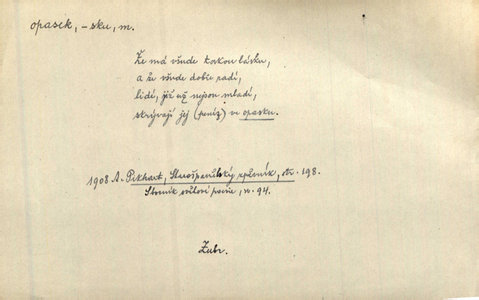 opasek, -sku, m.
Že má všude takou lásku,
a že všude dobře radí,
lidé, již už nejsou mladí,
skrývají jej (peníz) v opasku.
1908 A. Pikhart, Starošpanělský zpěvník, str. 198.
Sborník světové poesie, sv. 94.
Zubr.